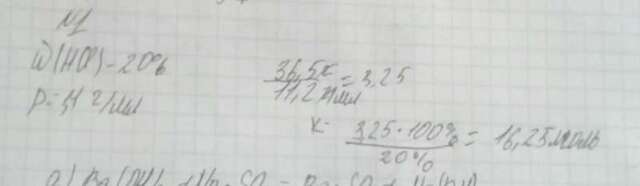 N1
ω(HCl) - 20%
ρ = 1,1 г/мл
36,5г / 11,2 г/мл = 3,25
x = 3,25 · 100% / 20% = 16,25 моль